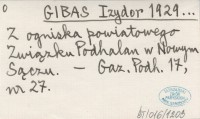 0 GIBAS Izydor 1929...
Z ogniska powiatowego
Związku Podhalan w Nowym
Sączu. — Gaz. Podh. 17,
nr 27.
BT/016/1203